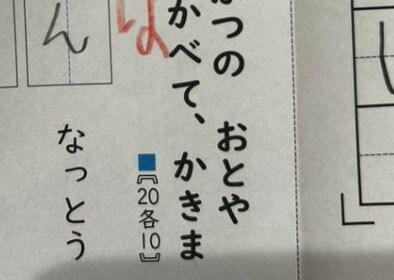 つの おとや
かべて、かきま
■〖20各10〗
な
ん
なっとう
し